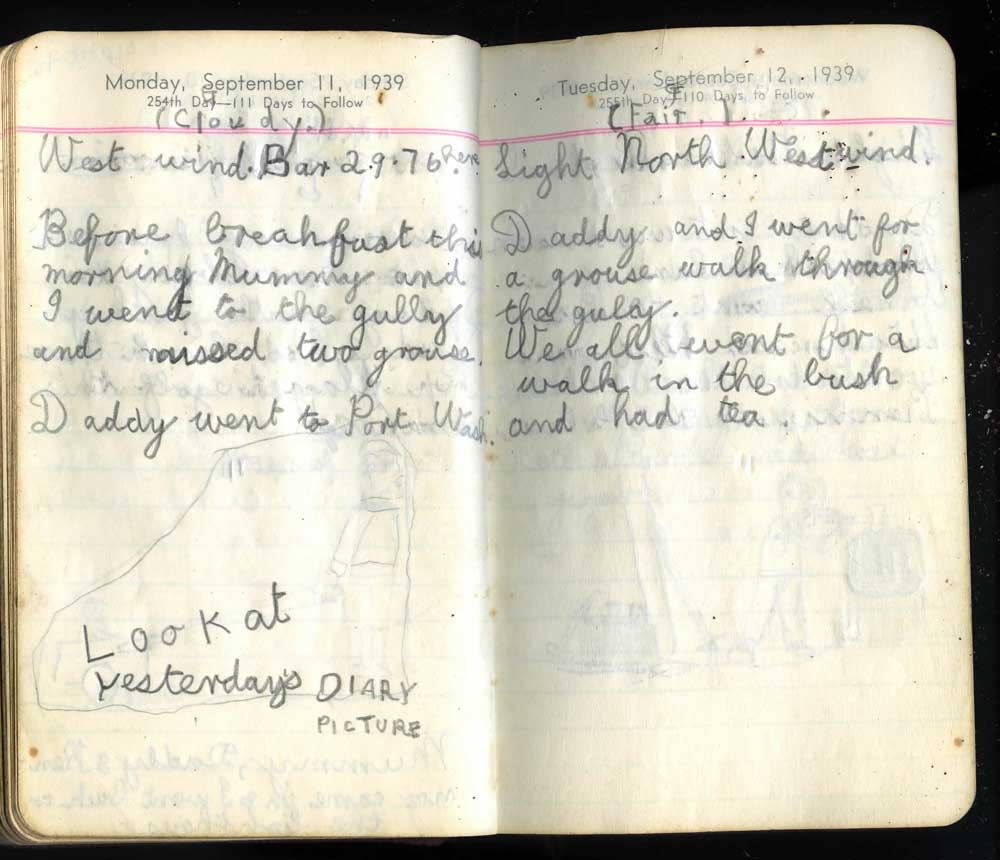 Monday, September 11, 1939
254th Day—111 Days to Follow
(Cloudy.)
West wind. Bar 29.76 here
Before breakfast this
morning Mummy and
I went to the gully
and missed two grouse.
Daddy went to Port Wash.
Look at
yesterday's DIARY
PICTURE
Tuesday, September 12, 1939
255th Day—110 Days to Follow
(Fair.).
Light North West wind.
Daddy and I went for
a grouse walk through
the gully.
We all went for a
walk in the bush
and had tea.